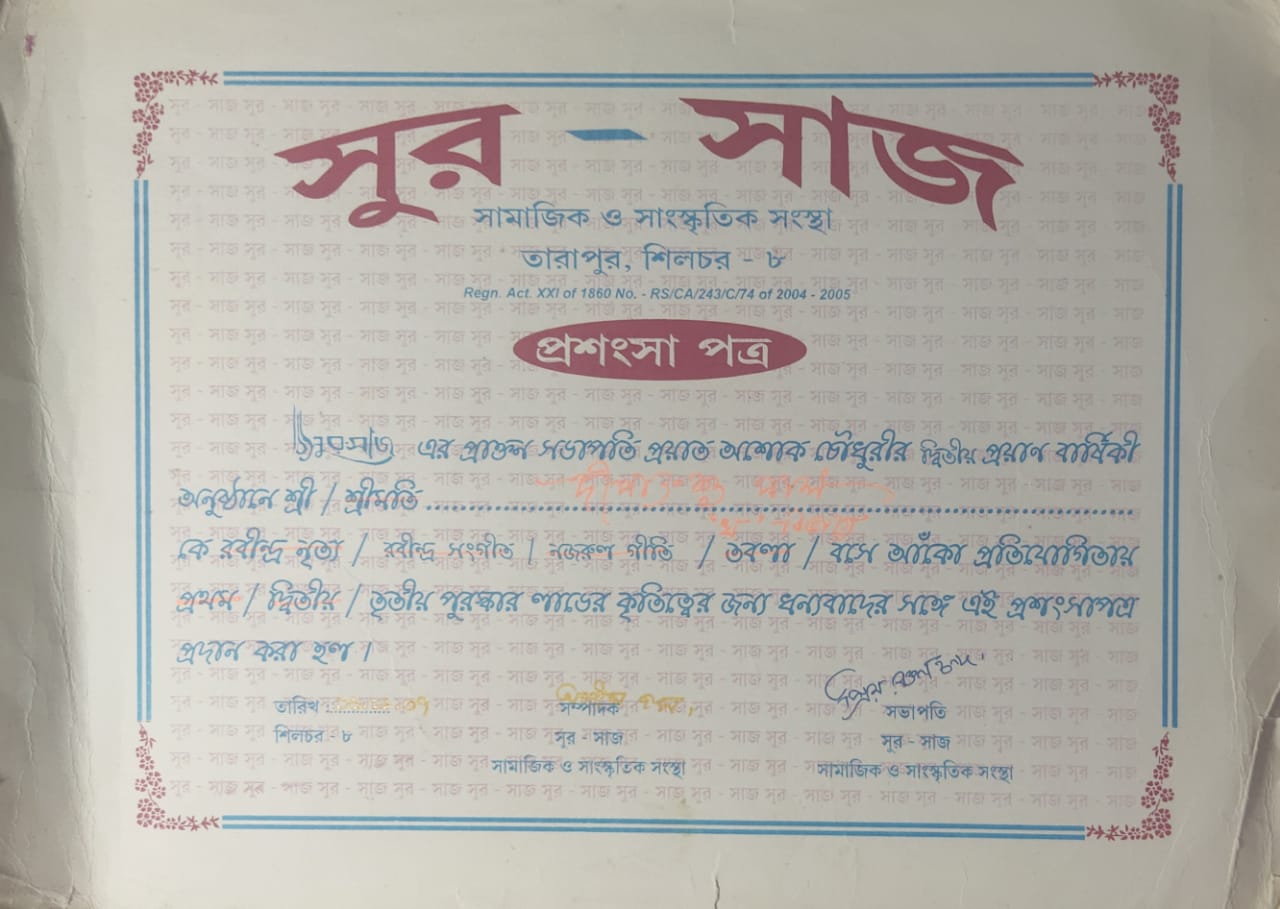 সুর - সাজ
সামাজিক ও সাংস্কৃতিক সংস্থা
তারাপুর, শিলচর - ৮
Regn. Act. XXI of 1860 No. - RS/CA/243/C/74 of 2004 - 2005
প্রশংসা পত্র
সুরসাজ এর প্রাক্তন সভাপতি প্রয়াত অশোক চৌধুরীর দ্বিতীয় প্রয়াণ বার্ষিকী
অনুষ্ঠানে শ্রী / শ্রীমতি
কে রবীন্দ্র নৃত্য / রবীন্দ্র সংগীত / নজরুল গীতি / তবলা / বসে আঁকো প্রতিযোগিতায়
প্রথম / দ্বিতীয় / তৃতীয় পুরস্কার লাভের কৃতিত্বের জন্য ধন্যবাদের সঙ্গে এই প্রশংসাপত্র
প্রদান করা হল ।
তারিখ সম্পাদক সভাপতি
শিলচর - ৮ সুর - সাজ সুর - সাজ
সামাজিক ও সাংস্কৃতিক সংস্থা সামাজিক ও সাংস্কৃতিক সংস্থা